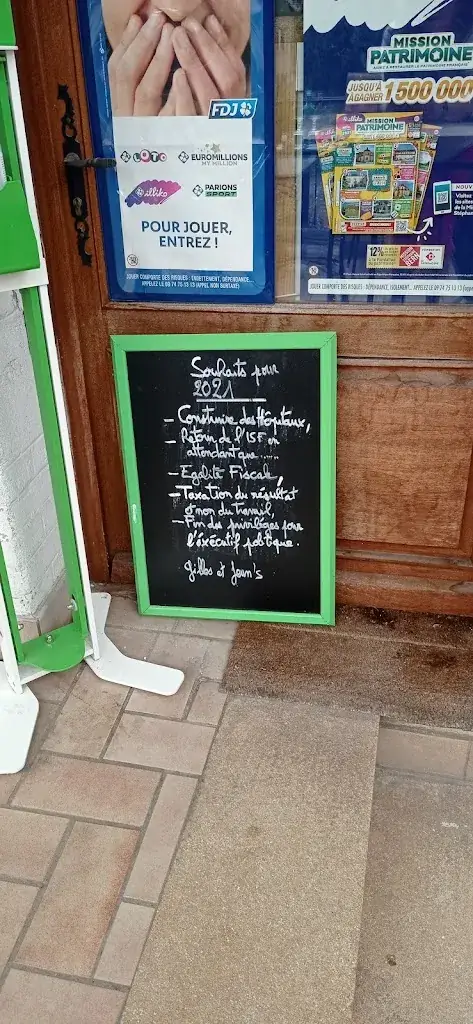 FDJ
LOTO
EUROMILLIONS
MY MILLION
illiko
PARIONS
SPORT
POUR JOUER,
ENTREZ !
JOUER COMPORTE DES RISQUES : ENDETTEMENT, DÉPENDANCE...
APPELEZ LE 09 74 75 13 13 (APPEL NON SURTAXÉ)
MISSION
PATRIMOINE
JUSQU'À
À GAGNER 1 500 000
illiko
MISSION
PATRIMOINE
NOUV
Visitez
les sites
de la Mi
Stéphane
12%
JOUER COMPORTE DES RISQUES : DÉPENDANCE, ISOLEMENT... APPELEZ LE 09 74 75 13 13
Souhaits pour
2021
- Construire des Hôpitaux,
- Retour de l'ISF en
attendant que .....
- Egalité Fiscale,
- Taxation du résultat
& non du travail,
- Fin des privilèges pour
l'éxécutif politique.
Gilles et Jean's